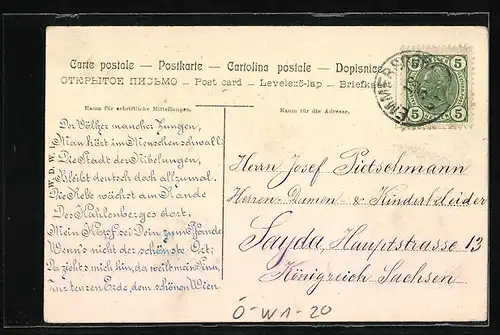 Carte postale — Postkarte — Cartolina postale — Dopisnice
ОТКРЫТОЕ ПИСЬМО — Post card — Levelező-lap — Briefka
Raum für schriftliche Mitteilungen.
Raum für die Adresse.
W. D. W.
5 5
5 5
Der Völker mancher Zungen,
Man hört im Menschenschwall:
Die Stadt der Nibelungen,
Bleibt deutsch doch allzumal.
Die Rebe wächst am Rande
Des Kahlenberges dort,
Mein Herz sei Dein zum Pfande
Wenn's nicht der schönste Ort;
Da zieht's mich hin, da weilt mein Sinn,
teuren Erde, dem schönen Wien.
Herrn Josef Pietschmann
Herren- Damen- & Kinderkleider
Sayda, Hauptstrasse 13
Königreich Sachsen
Ö-W1-20